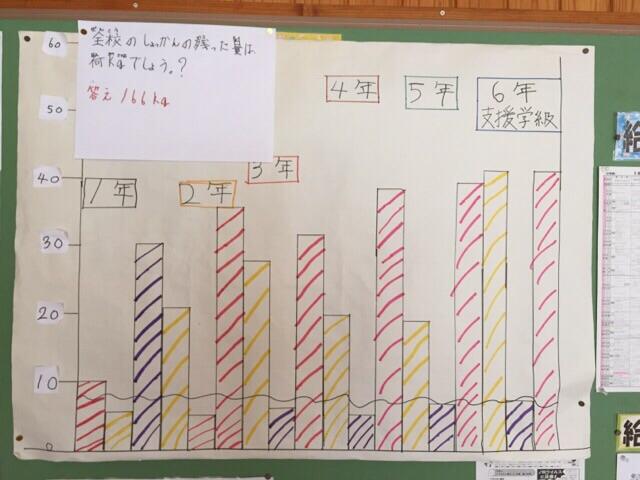 全校のしょっかんの残った量は
何kgでしょう。?
答え 166kg
60
50
40
30
20
10
0
1年
2年
3年
4年
5年
6年
支援学級
給
給